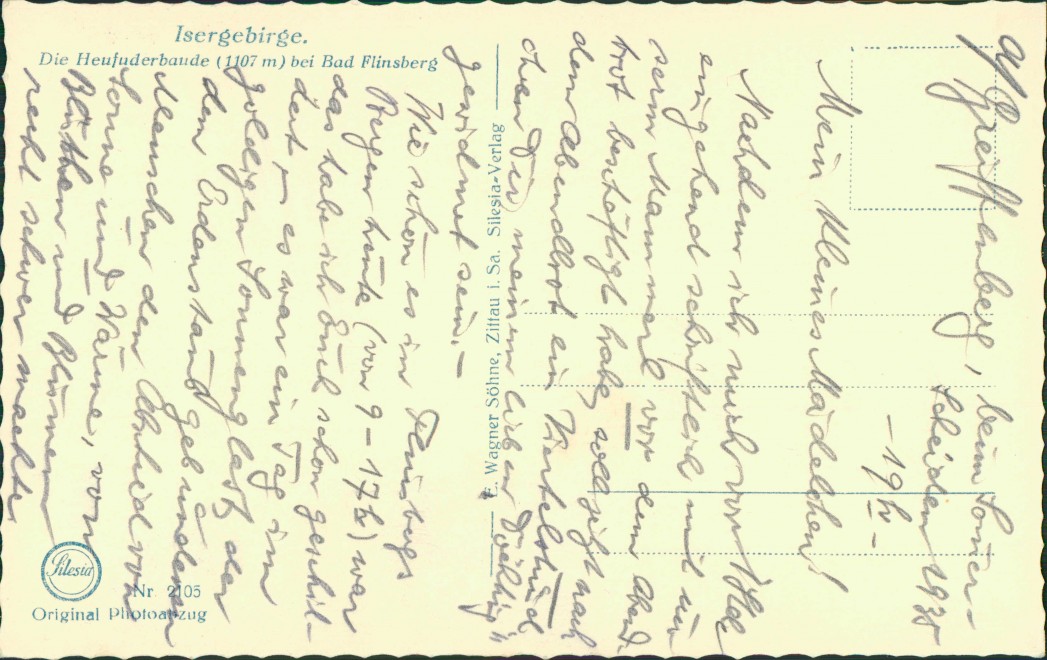 Isergebirge.
Die Heufuderbaude (1107 m) bei Bad Flinsberg
E. Wagner Söhne, Zittau i. Sa. Silesia-Verlag
Silesia
Nr. 2105
Original Photoabzug
Greiffenberg, beim Sonnen-
scheiden 1938
- 19 hr -
Mein kleines Mädelchen!
Nachdem ich mich von
eingehend schriftlich mit un
serm Mannerl vor dem Abend
brot beschäftigt habe, soll jetzt nach
dem Abendbrot ein Viertelstünd
chen Dir meinem lieben
gewidmet sein. -
Wie schön es im Flinsbergs
Regen heute (von 9 - 17 hr) war
das habe ich Euch schon geschil-
dert - es war ein Tag im
goldigen Sonnenglast, der
dem Erdenstaub gebundenen
Menschen den Abschied von
Sonne und Wärme, von
Blüthen und Blumen
recht schwer machte